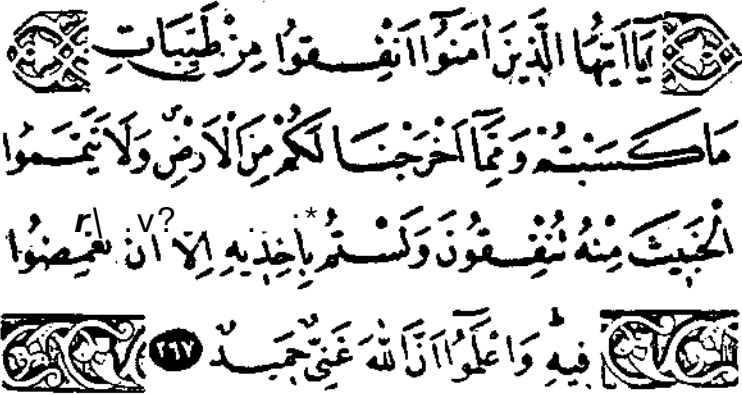 يَٓا اَيُّهَا الَّذ۪ينَ اٰمَنُٓوا اَنْفِقُوا مِنْ طَيِّبَاتِ
مَا كَسَبْتُمْ وَمِمَّٓا اَخْرَجْنَا لَكُمْ مِنَ الْاَرْضِۖ وَلَا تَيَمَّمُوا
الْخَب۪يثَ مِنْهُ تُنْفِقُونَ وَلَسْتُمْ بِاٰخِذ۪يهِ اِلَّٓا اَنْ تُغْمِضُوا
r\ .v? . .*
ف۪يهِۜ وَاعْلَمُٓوا اَنَّ اللّٰهَ غَنِيٌّ حَم۪يدٌ ٢٦٧